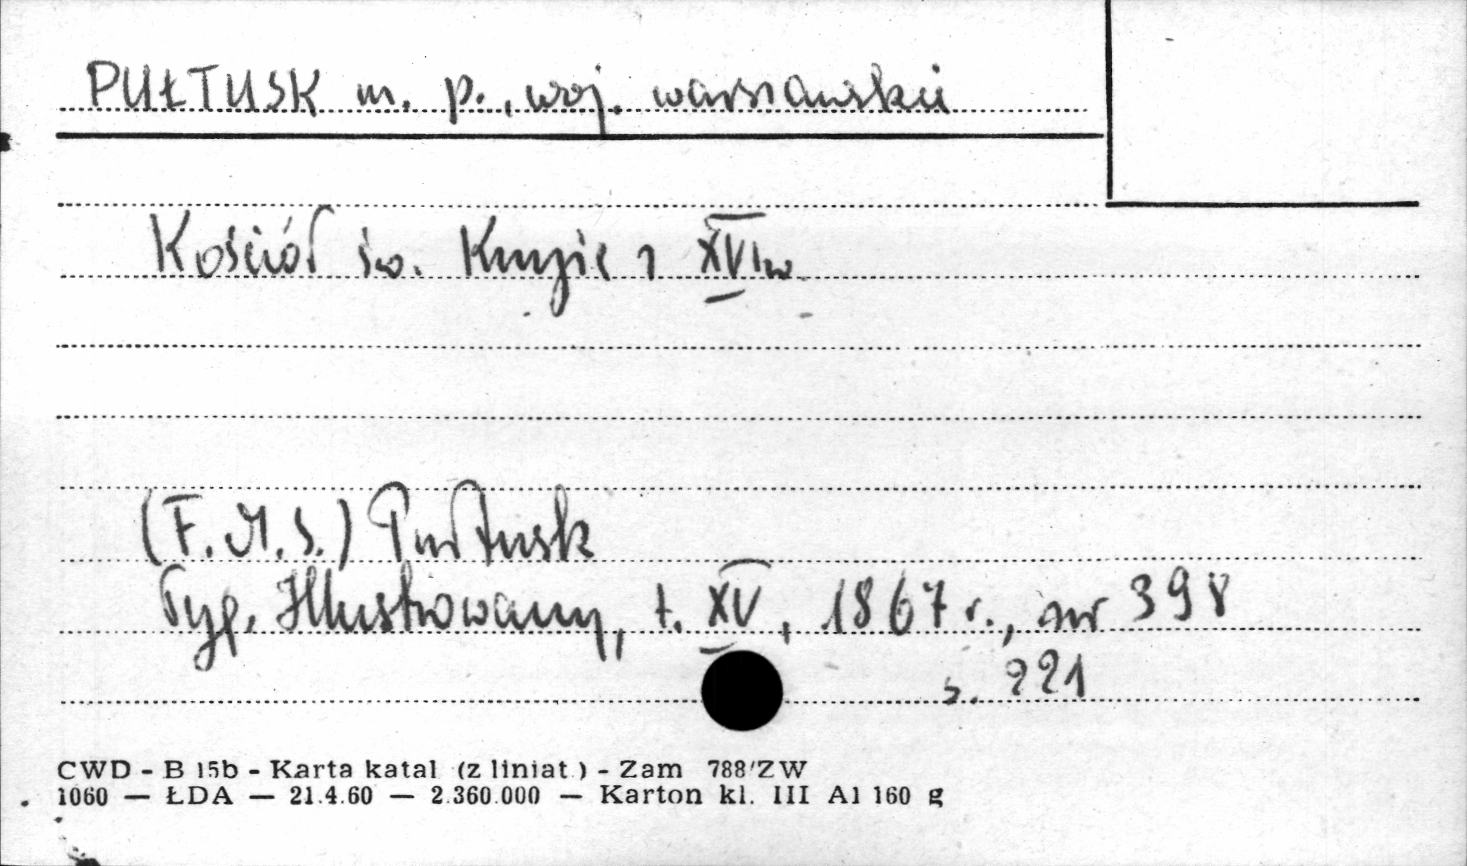 PUŁTUSK m. p., woj. warszawskie
Kościół św. Krzyża z XVI w.
(F. M. S.) Pułtusk
Tyg. Illustrowany, t. XV, 1867 r., nr 398
s. 221
CWD - B 15b - Karta katal (z liniat.) - Zam 788/ZW
1060 — ŁDA — 21.4.60 — 2.360.000 — Karton kl. III A1 160 g